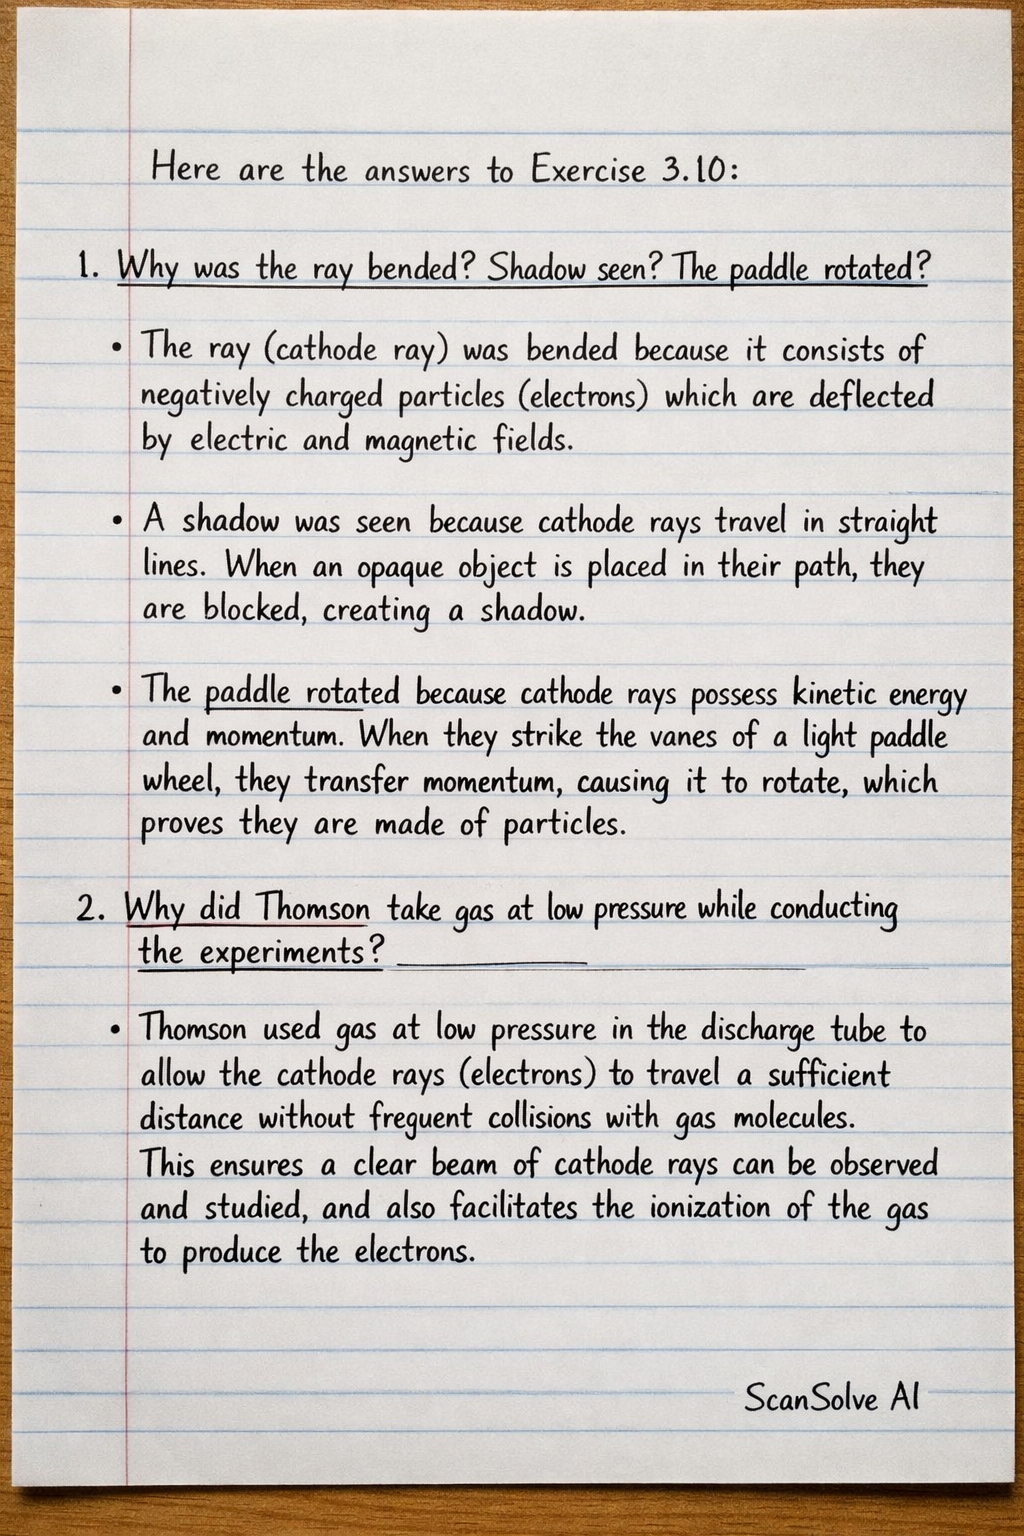 Here are the answers to Exercise 3.10:
1. Why was the ray bended? Shadow seen? The paddle rotated?
• The ray (cathode ray) was bended because it consists of
negatively charged particles (electrons) which are deflected
by electric and magnetic fields.
• A shadow was seen because cathode rays travel in straight
lines. When an opaque object is placed in their path, they
are blocked, creating a shadow.
• The paddle rotated because cathode rays possess kinetic energy
and momentum. When they strike the vanes of a light paddle
wheel, they transfer momentum, causing it to rotate, which
proves they are made of particles.
2. Why did Thomson take gas at low pressure while conducting
the experiments?
• Thomson used gas at low pressure in the discharge tube to
allow the cathode rays (electrons) to travel a sufficient
distance without frequent collisions with gas molecules.
This ensures a clear beam of cathode rays can be observed
and studied, and also facilitates the ionization of the gas
to produce the electrons.
ScanSolve AI